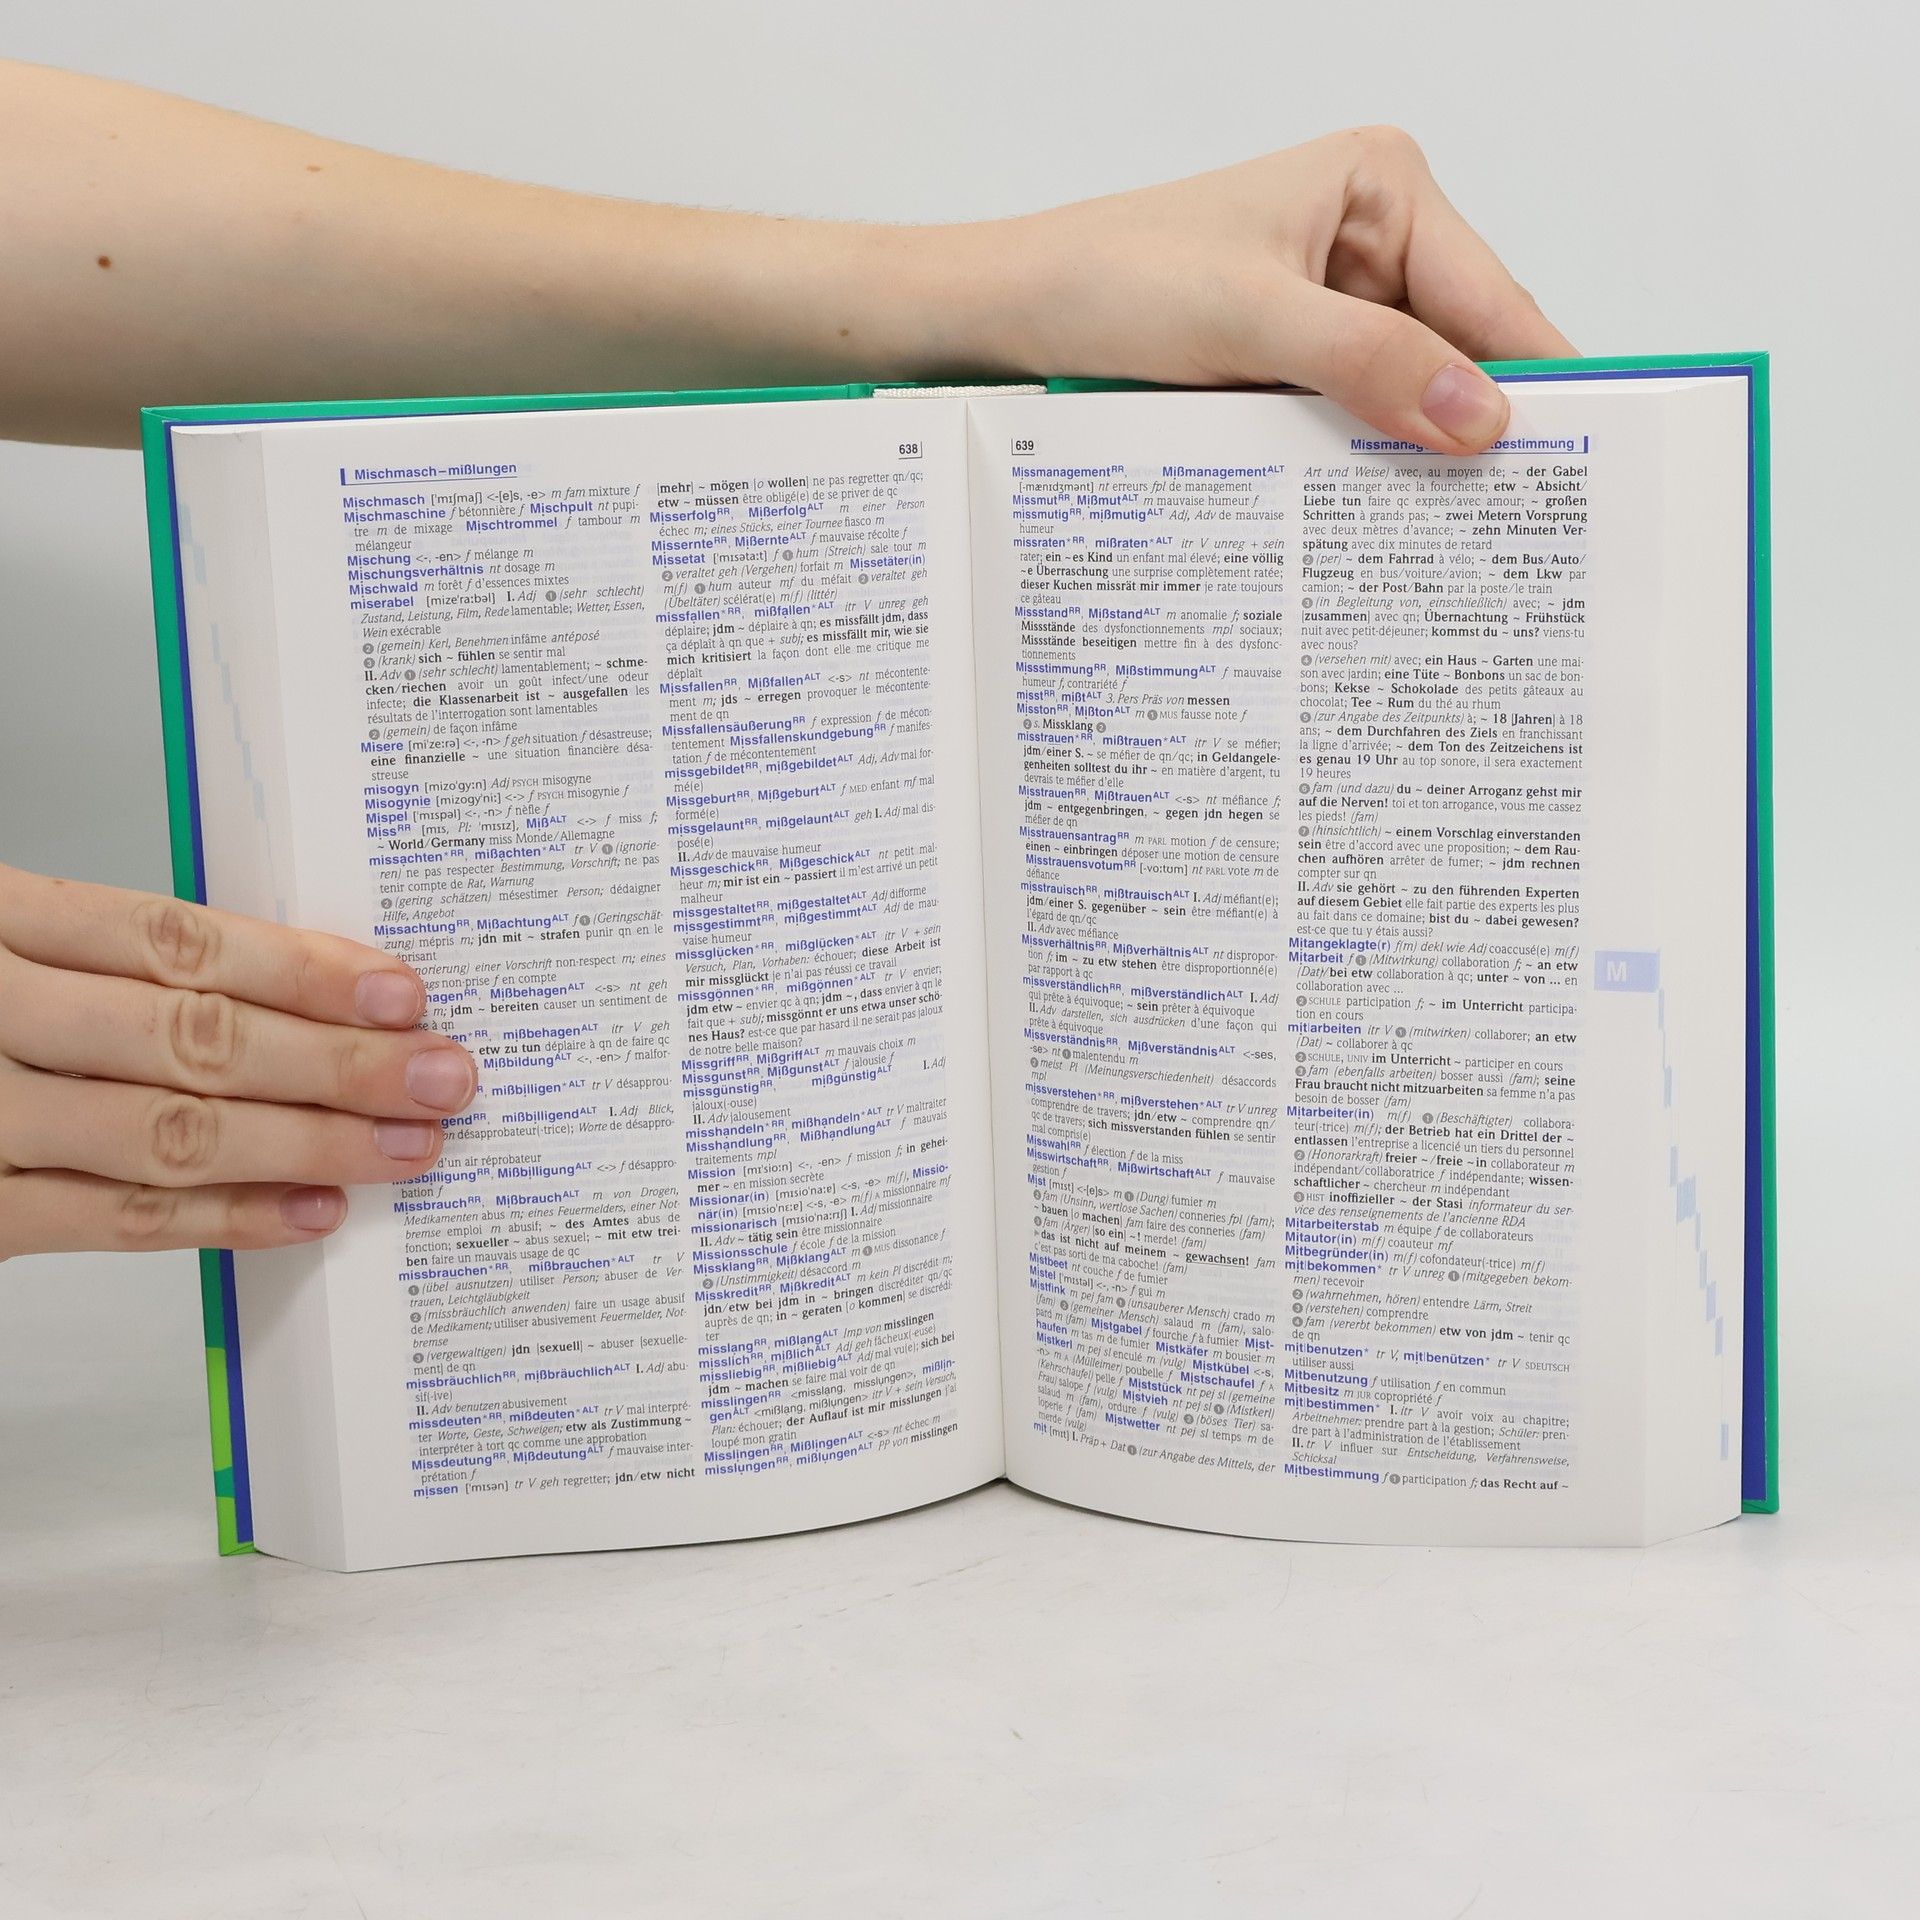 Mischmasch–mißlungen
638
Mischmasch ['mɪʃmaʃ] <-[e]s, -e> m fam mixture f
Mischmaschine f bétonnière f Mischpult nt pupi-
tre m de mixage Mischtrommel f tambour m
mélangeur
Mischung <-, -en> f mélange m
Mischungsverhältnis nt dosage m
Mischwald m forêt f d'essences mixtes
miserabel [mizə'ra:bəl] I. Adj ❶ (sehr schlecht)
Zustand, Leistung, Film, Rede lamentable; Wetter, Essen,
Wein exécrable
❷ (gemein) Kerl, Benehmen infâme antéposé
❸ (krank) sich ~ fühlen se sentir mal
II. Adv ❶ (sehr schlecht) lamentablement; ~ schme-
cken/riechen avoir un goût infect/une odeur
infecte; die Klassenarbeit ist ~ ausgefallen les
résultats de l'interrogation sont lamentables
❷ (gemein) de façon infâme
Misere [mi'ze:rə] <-, -n> f geh situation f désastreuse;
eine finanzielle ~ une situation financière désa-
streuse
misogyn [mizo'gy:n] Adj PSYCH misogyne
Misogynie [mizogy'ni:] <-> f PSYCH misogynie f
Mispel ['mɪspəl] <-, -n> f nèfle f
Missᴿᴿ [mɪs, Pl: 'mɪsɪz], Mißᴬᴸᵀ <-> f miss f;
~ World/Germany miss Monde/Allemagne
missachten*ᴿᴿ, mißachten*ᴬᴸᵀ tr V ❶ (ignorie-
ren) ne pas respecter Bestimmung, Vorschrift; ne pas
tenir compte de Rat, Warnung
❷ (gering schätzen) mésestimer Person; dédaigner
Hilfe, Angebot
Missachtungᴿᴿ, Mißachtungᴬᴸᵀ f ❶ (Geringschät-
zung) mépris m; jdn mit ~ strafen punir qn en le
éprisant
norierung) einer Vorschrift non-respect m; eines
lags non-prise f en compte
hagenᴿᴿ, Mißbehagenᴬᴸᵀ <-s> nt geh
e m; jdm ~ bereiten causer un sentiment de
se à qn
en*ᴿᴿ, mißbehagen*ᴬᴸᵀ itr V geh
~ etw zu tun déplaire à qn de faire qc
Mißbildungᴬᴸᵀ <-, -en> f malfor-
ᴿᴿ, mißbilligen*ᴬᴸᵀ tr V désapprou-
gendᴿᴿ, mißbilligendᴬᴸᵀ I. Adj Blick,
on désapprobateur(-trice); Worte de désappro-
d'un air réprobateur
Missbilligungᴿᴿ, Mißbilligungᴬᴸᵀ <-> f désappro-
bation f
Missbrauchᴿᴿ, Mißbrauchᴬᴸᵀ m von Drogen,
Medikamenten abus m; eines Feuermelders, einer Not-
bremse emploi m abusif; ~ des Amtes abus de
fonction; sexueller ~ abus sexuel; ~ mit etw trei-
ben faire un mauvais usage de qc
missbrauchen*ᴿᴿ, mißbrauchen*ᴬᴸᵀ tr V
❶ (übel ausnutzen) utiliser Person; abuser de Ver-
trauen, Leichtgläubigkeit
❷ (missbräuchlich anwenden) faire un usage abusif
de Medikament; utiliser abusivement Feuermelder, Not-
bremse
❸ (vergewaltigen) jdn [sexuell] ~ abuser [sexuelle-
ment] de qn
missbräuchlichᴿᴿ, mißbräuchlichᴬᴸᵀ I. Adj abu-
sif(-ive)
II. Adv benutzen abusivement
missdeuten*ᴿᴿ, mißdeuten*ᴬᴸᵀ tr V mal interpré-
ter Worte, Geste, Schweigen; etw als Zustimmung ~
interpréter à tort qc comme une approbation
Missdeutungᴿᴿ, Mißdeutungᴬᴸᵀ f mauvaise inter-
prétation f
missen ['mɪsən] tr V geh regretter; jdn/etw nicht
[mehr] ~ mögen [o wollen] ne pas regretter qn/qc;
etw ~ müssen être obligé(e) de se priver de qc
Misserfolgᴿᴿ, Mißerfolgᴬᴸᵀ m einer Person
échec m; eines Stücks, einer Tournee fiasco m
Missernteᴿᴿ, Mißernteᴬᴸᵀ f mauvaise récolte f
Missetat ['mɪsəta:t] f ❶ hum (Streich) sale tour m
❷ veraltet geh (Vergehen) forfait m Missetäter(in)
m(f) ❶ hum auteur mf du méfait ❷ veraltet geh
(Übeltäter) scélérat(e) m(f) (littér)
missfallen*ᴿᴿ, mißfallen*ᴬᴸᵀ itr V unreg geh
déplaire; jdm ~ déplaire à qn; es missfällt jdm, dass
ça déplaît à qn que + subj; es missfällt mir, wie sie
mich kritisiert la façon dont elle me critique me
déplaît
Missfallenᴿᴿ, Mißfallenᴬᴸᵀ <-s> nt mécontente-
ment m; jds ~ erregen provoquer le mécontente-
ment de qn
Missfallensäußerungᴿᴿ f expression f de mécon-
tentement Missfallenskundgebungᴿᴿ f manifes-
tation f de mécontentement
missgebildetᴿᴿ, mißgebildetᴬᴸᵀ Adj, Adv mal for-
mé(e)
Missgeburtᴿᴿ, Mißgeburtᴬᴸᵀ f MED enfant mf mal
formé(e)
missgelauntᴿᴿ, mißgelauntᴬᴸᵀ geh I. Adj mal dis-
posé(e)
II. Adv de mauvaise humeur
Missgeschickᴿᴿ, Mißgeschickᴬᴸᵀ nt petit mal-
heur m; mir ist ein ~ passiert il m'est arrivé un petit
malheur
missgestaltetᴿᴿ, mißgestaltetᴬᴸᵀ Adj difforme
missgestimmtᴿᴿ, mißgestimmtᴬᴸᵀ Adj de mau-
vaise humeur
missglücken*ᴿᴿ, mißglücken*ᴬᴸᵀ itr V + sein
Versuch, Plan, Vorhaben: échouer; diese Arbeit ist
mir missglückt je n'ai pas réussi ce travail
missgönnen*ᴿᴿ, mißgönnen*ᴬᴸᵀ tr V envier;
jdm etw ~ envier qc à qn; jdm ~, dass envier à qn le
fait que + subj; missgönnt er uns etwa unser schö-
nes Haus? est-ce que par hasard il ne serait pas jaloux
de notre belle maison?
Missgriffᴿᴿ, Mißgriffᴬᴸᵀ m mauvais choix m
Missgunstᴿᴿ, Mißgunstᴬᴸᵀ f jalousie f
missgünstigᴿᴿ, mißgünstigᴬᴸᵀ I. Adj
jaloux(-ouse)
II. Adv jalousement
misshandeln*ᴿᴿ, mißhandeln*ᴬᴸᵀ tr V maltraiter
Misshandlungᴿᴿ, Mißhandlungᴬᴸᵀ f mauvais
traitements mpl
Mission [mɪ'sio:n] <-, -en> f mission f; in gehei-
mer ~ en mission secrète
Missionar(in) [mɪsio'na:ɐ] <-s, -e> m(f), Missio-
när(in) [mɪsio'nɛ:ɐ] <-s, -e> m(f) A missionnaire mf
missionarisch [mɪsio'na:rɪʃ] I. Adj missionnaire
II. Adv ~ tätig sein être missionnaire
Missionsschule f école f de la mission
Missklangᴿᴿ, Mißklangᴬᴸᵀ m ❶ MUS dissonance f
❷ (Unstimmigkeit) désaccord m
Misskreditᴿᴿ, Mißkreditᴬᴸᵀ m kein Pl discrédit m;
jdn/etw bei jdm in ~ bringen discréditer qn/qc
auprès de qn; in ~ geraten [o kommen] se discrédi-
ter
misslangᴿᴿ, mißlangᴬᴸᵀ Imp von misslingen
misslichᴿᴿ, mißlichᴬᴸᵀ Adj geh fâcheux(-euse)
missliebigᴿᴿ, mißliebigᴬᴸᵀ Adj mal vu(e); sich bei
jdm ~ machen se faire mal voir de qn
misslingenᴿᴿ <misslang, misslungen>, mißlin-
genᴬᴸᵀ <mißlang, mißlungen> itr V + sein Versuch,
Plan: échouer; der Auflauf ist mir misslungen j'ai
loupé mon gratin
Misslingenᴿᴿ, Mißlingenᴬᴸᵀ <-s> nt échec m
misslungenᴿᴿ, mißlungenᴬᴸᵀ PP von misslingen
639
Missmanag bestimmung
Missmanagementᴿᴿ, Mißmanagementᴬᴸᵀ
[-mænɪdʒmənt] nt erreurs fpl de management
Missmutᴿᴿ, Mißmutᴬᴸᵀ m mauvaise humeur f
missmutigᴿᴿ, mißmutigᴬᴸᵀ Adj, Adv de mauvaise
humeur
missraten*ᴿᴿ, mißraten*ᴬᴸᵀ itr V unreg + sein
rater; ein ~es Kind un enfant mal élevé; eine völlig
~e Überraschung une surprise complètement ratée;
dieser Kuchen missrät mir immer je rate toujours
ce gâteau
Missstandᴿᴿ, Mißstandᴬᴸᵀ m anomalie f; soziale
Missstände des dysfonctionnements mpl sociaux;
Missstände beseitigen mettre fin à des dysfonc-
tionnements
Missstimmungᴿᴿ, Mißstimmungᴬᴸᵀ f mauvaise
humeur f, contrariété f
misstᴿᴿ, mißtᴬᴸᵀ 3. Pers Präs von messen
Misstonᴿᴿ, Mißtonᴬᴸᵀ m ❶ MUS fausse note f
❷ s. Missklang ❷
misstrauen*ᴿᴿ, mißtrauen*ᴬᴸᵀ itr V se méfier;
jdm/einer S. ~ se méfier de qn/qc; in Geldangele-
genheiten solltest du ihr ~ en matière d'argent, tu
devrais te méfier d'elle
Misstrauenᴿᴿ, Mißtrauenᴬᴸᵀ <-s> nt méfiance f;
jdm ~ entgegenbringen, ~ gegen jdn hegen se
méfier de qn
Misstrauensantragᴿᴿ m PARL motion f de censure;
einen ~ einbringen déposer une motion de censure
Misstrauensvotumᴿᴿ [-vo:tʊm] nt PARL vote m de
défiance
misstrauischᴿᴿ, mißtrauischᴬᴸᵀ I. Adj méfiant(e);
jdm/einer S. gegenüber ~ sein être méfiant(e) à
l'égard de qn/qc
II. Adv avec méfiance
Missverhältnisᴿᴿ, Mißverhältnisᴬᴸᵀ nt dispropor-
tion f; im ~ zu etw stehen être disproportionné(e)
par rapport à qc
missverständlichᴿᴿ, mißverständlichᴬᴸᵀ I. Adj
qui prête à équivoque; ~ sein prêter à équivoque
II. Adv darstellen, sich ausdrücken d'une façon qui
prête à équivoque
Missverständnisᴿᴿ, Mißverständnisᴬᴸᵀ <-ses,
-se> nt ❶ malentendu m
❷ meist Pl (Meinungsverschiedenheit) désaccords
mpl
missverstehen*ᴿᴿ, mißverstehen*ᴬᴸᵀ tr V unreg
comprendre de travers; jdn/etw ~ comprendre qn/
qc de travers; sich missverstanden fühlen se sentir
mal compris(e)
Misswahlᴿᴿ f élection f de la miss
Misswirtschaftᴿᴿ, Mißwirtschaftᴬᴸᵀ f mauvaise
gestion f
Mist [mɪst] <-[e]s> m ❶ (Dung) fumier m
❷ fam (Unsinn, wertlose Sachen) conneries fpl (fam);
~ bauen [o machen] fam faire des conneries (fam)
❸ fam (Ärger) [so ein] ~! merde! (fam)
▸ das ist nicht auf meinem ~ gewachsen! fam
c'est pas sorti de ma caboche! (fam)
Mistbeet nt couche f de fumier
Mistel ['mɪstəl] <-, -n> f gui m
Mistfink m pej fam ❶ (unsauberer Mensch) crado m
(fam) ❷ (gemeiner Mensch) salaud m (fam), salo-
pard m (fam) Mistgabel f fourche f à fumier Mist-
haufen m tas m de fumier Mistkäfer m bousier m
Mistkerl m pej sl enculé m (vulg) Mistkübel <-s,
-n> m A (Mülleimer) poubelle f Mistschaufel f A
(Kehrschaufel) pelle f Miststück nt pej sl (gemeine
Frau) salope f (vulg) Mistvieh nt pej sl ❶ (Mistkerl)
salaud m (fam), ordure f (vulg) ❷ (böses Tier) sa-
loperie f (fam) Mistwetter nt pej sl temps m de
merde (vulg)
mit [mɪt] I. Präp + Dat ❶ (zur Angabe des Mittels, der
Art und Weise) avec, au moyen de; ~ der Gabel
essen manger avec la fourchette; etw ~ Absicht/
Liebe tun faire qc exprès/avec amour; ~ großen
Schritten à grands pas; ~ zwei Metern Vorsprung
avec deux mètres d'avance; ~ zehn Minuten Ver-
spätung avec dix minutes de retard
❷ (per) ~ dem Fahrrad à vélo; ~ dem Bus/Auto/
Flugzeug en bus/voiture/avion; ~ dem Lkw par
camion; ~ der Post/Bahn par la poste/le train
❸ (in Begleitung von, einschließlich) avec; ~ jdm
[zusammen] avec qn; Übernachtung ~ Frühstück
nuit avec petit-déjeuner; kommst du ~ uns? viens-tu
avec nous?
❹ (versehen mit) avec; ein Haus ~ Garten une mai-
son avec jardin; eine Tüte ~ Bonbons un sac de bon-
bons; Kekse ~ Schokolade des petits gâteaux au
chocolat; Tee ~ Rum du thé au rhum
❺ (zur Angabe des Zeitpunkts) à; ~ 18 [Jahren] à 18
ans; ~ dem Durchfahren des Ziels en franchissant
la ligne d'arrivée; ~ dem Ton des Zeitzeichens ist
es genau 19 Uhr au top sonore, il sera exactement
19 heures
❻ fam (und dazu) du ~ deiner Arroganz gehst mir
auf die Nerven! toi et ton arrogance, vous me cassez
les pieds! (fam)
❼ (hinsichtlich) ~ einem Vorschlag einverstanden
sein être d'accord avec une proposition; ~ dem Rau-
chen aufhören arrêter de fumer; ~ jdm rechnen
compter sur qn
II. Adv sie gehört ~ zu den führenden Experten
auf diesem Gebiet elle fait partie des experts les plus
au fait dans ce domaine; bist du ~ dabei gewesen?
est-ce que tu y étais aussi?
Mitangeklagte(r) f(m) dekl wie Adj coaccusé(e) m(f)
Mitarbeit f ❶ (Mitwirkung) collaboration f; ~ an etw
(Dat)/bei etw collaboration à qc; unter ~ von ... en
collaboration avec ...
❷ SCHULE participation f; ~ im Unterricht participa-
tion en cours
mit|arbeiten itr V ❶ (mitwirken) collaborer; an etw
(Dat) ~ collaborer à qc
❷ SCHULE, UNIV im Unterricht ~ participer en cours
❸ fam (ebenfalls arbeiten) bosser aussi (fam); seine
Frau braucht nicht mitzuarbeiten sa femme n'a pas
besoin de bosser (fam)
Mitarbeiter(in) m(f) ❶ (Beschäftigter) collabora-
teur(-trice) m(f); der Betrieb hat ein Drittel der ~
entlassen l'entreprise a licencié un tiers du personnel
❷ (Honorarkraft) freier ~/freie ~in collaborateur m
indépendant/collaboratrice f indépendante; wissen-
schaftlicher ~ chercheur m indépendant
❸ HIST inoffizieller ~ der Stasi informateur du ser-
vice des renseignements de l'ancienne RDA
Mitarbeiterstab m équipe f de collaborateurs
Mitautor(in) m(f) coauteur mf
Mitbegründer(in) m(f) cofondateur(-trice) m(f)
mit|bekommen* tr V unreg ❶ (mitgegeben bekom-
men) recevoir
❷ (wahrnehmen, hören) entendre Lärm, Streit
❸ (verstehen) comprendre
❹ fam (vererbt bekommen) etw von jdm ~ tenir qc
de qn
mit|benutzen* tr V, mit|benützen* tr V SDEUTSCH
utiliser aussi
Mitbenutzung f utilisation f en commun
Mitbesitz m JUR copropriété f
mit|bestimmen* I. itr V avoir voix au chapitre;
Arbeitnehmer: prendre part à la gestion; Schüler: pren-
dre part à l'administration de l'établissement
II. tr V influer sur Entscheidung, Verfahrensweise,
Schicksal
Mitbestimmung f ❶ participation f; das Recht auf ~
M